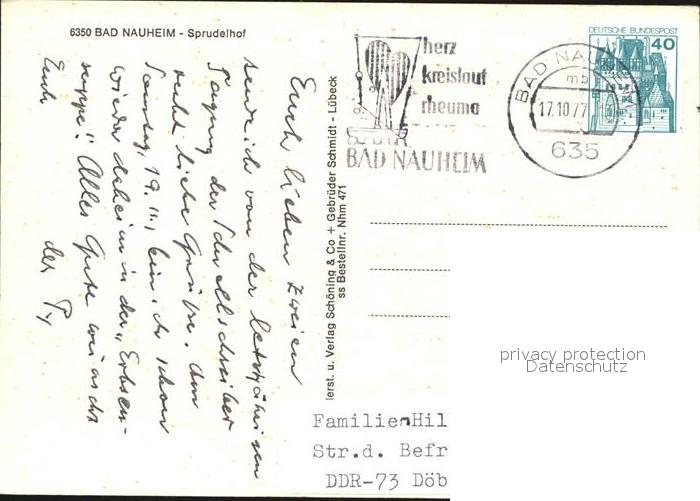 6350 BAD NAUHEIM - Sprudelhof
herz
kreislauf
rheuma
BAD NAUHEIM
BAD NAUHEIM
mb
17.10.77
635
DEUTSCHE BUNDESPOST
40
Euch lieben Zweien
sende ich von der
Tagung der Schnellschreiber
recht liebe Grüße. Am
Samstag, bin ich schon
wieder daheim in der „Erbsen-
suppe“! Alles Gute wünscht
Euch der
ierst. u. Verlag Schöning & Co + Gebrüder Schmidt - Lübeck
ss Bestellnr. Nhm 471
privacy protection
Datenschutz
FamilienHil
Str.d. Befr
DDR-73 Döb